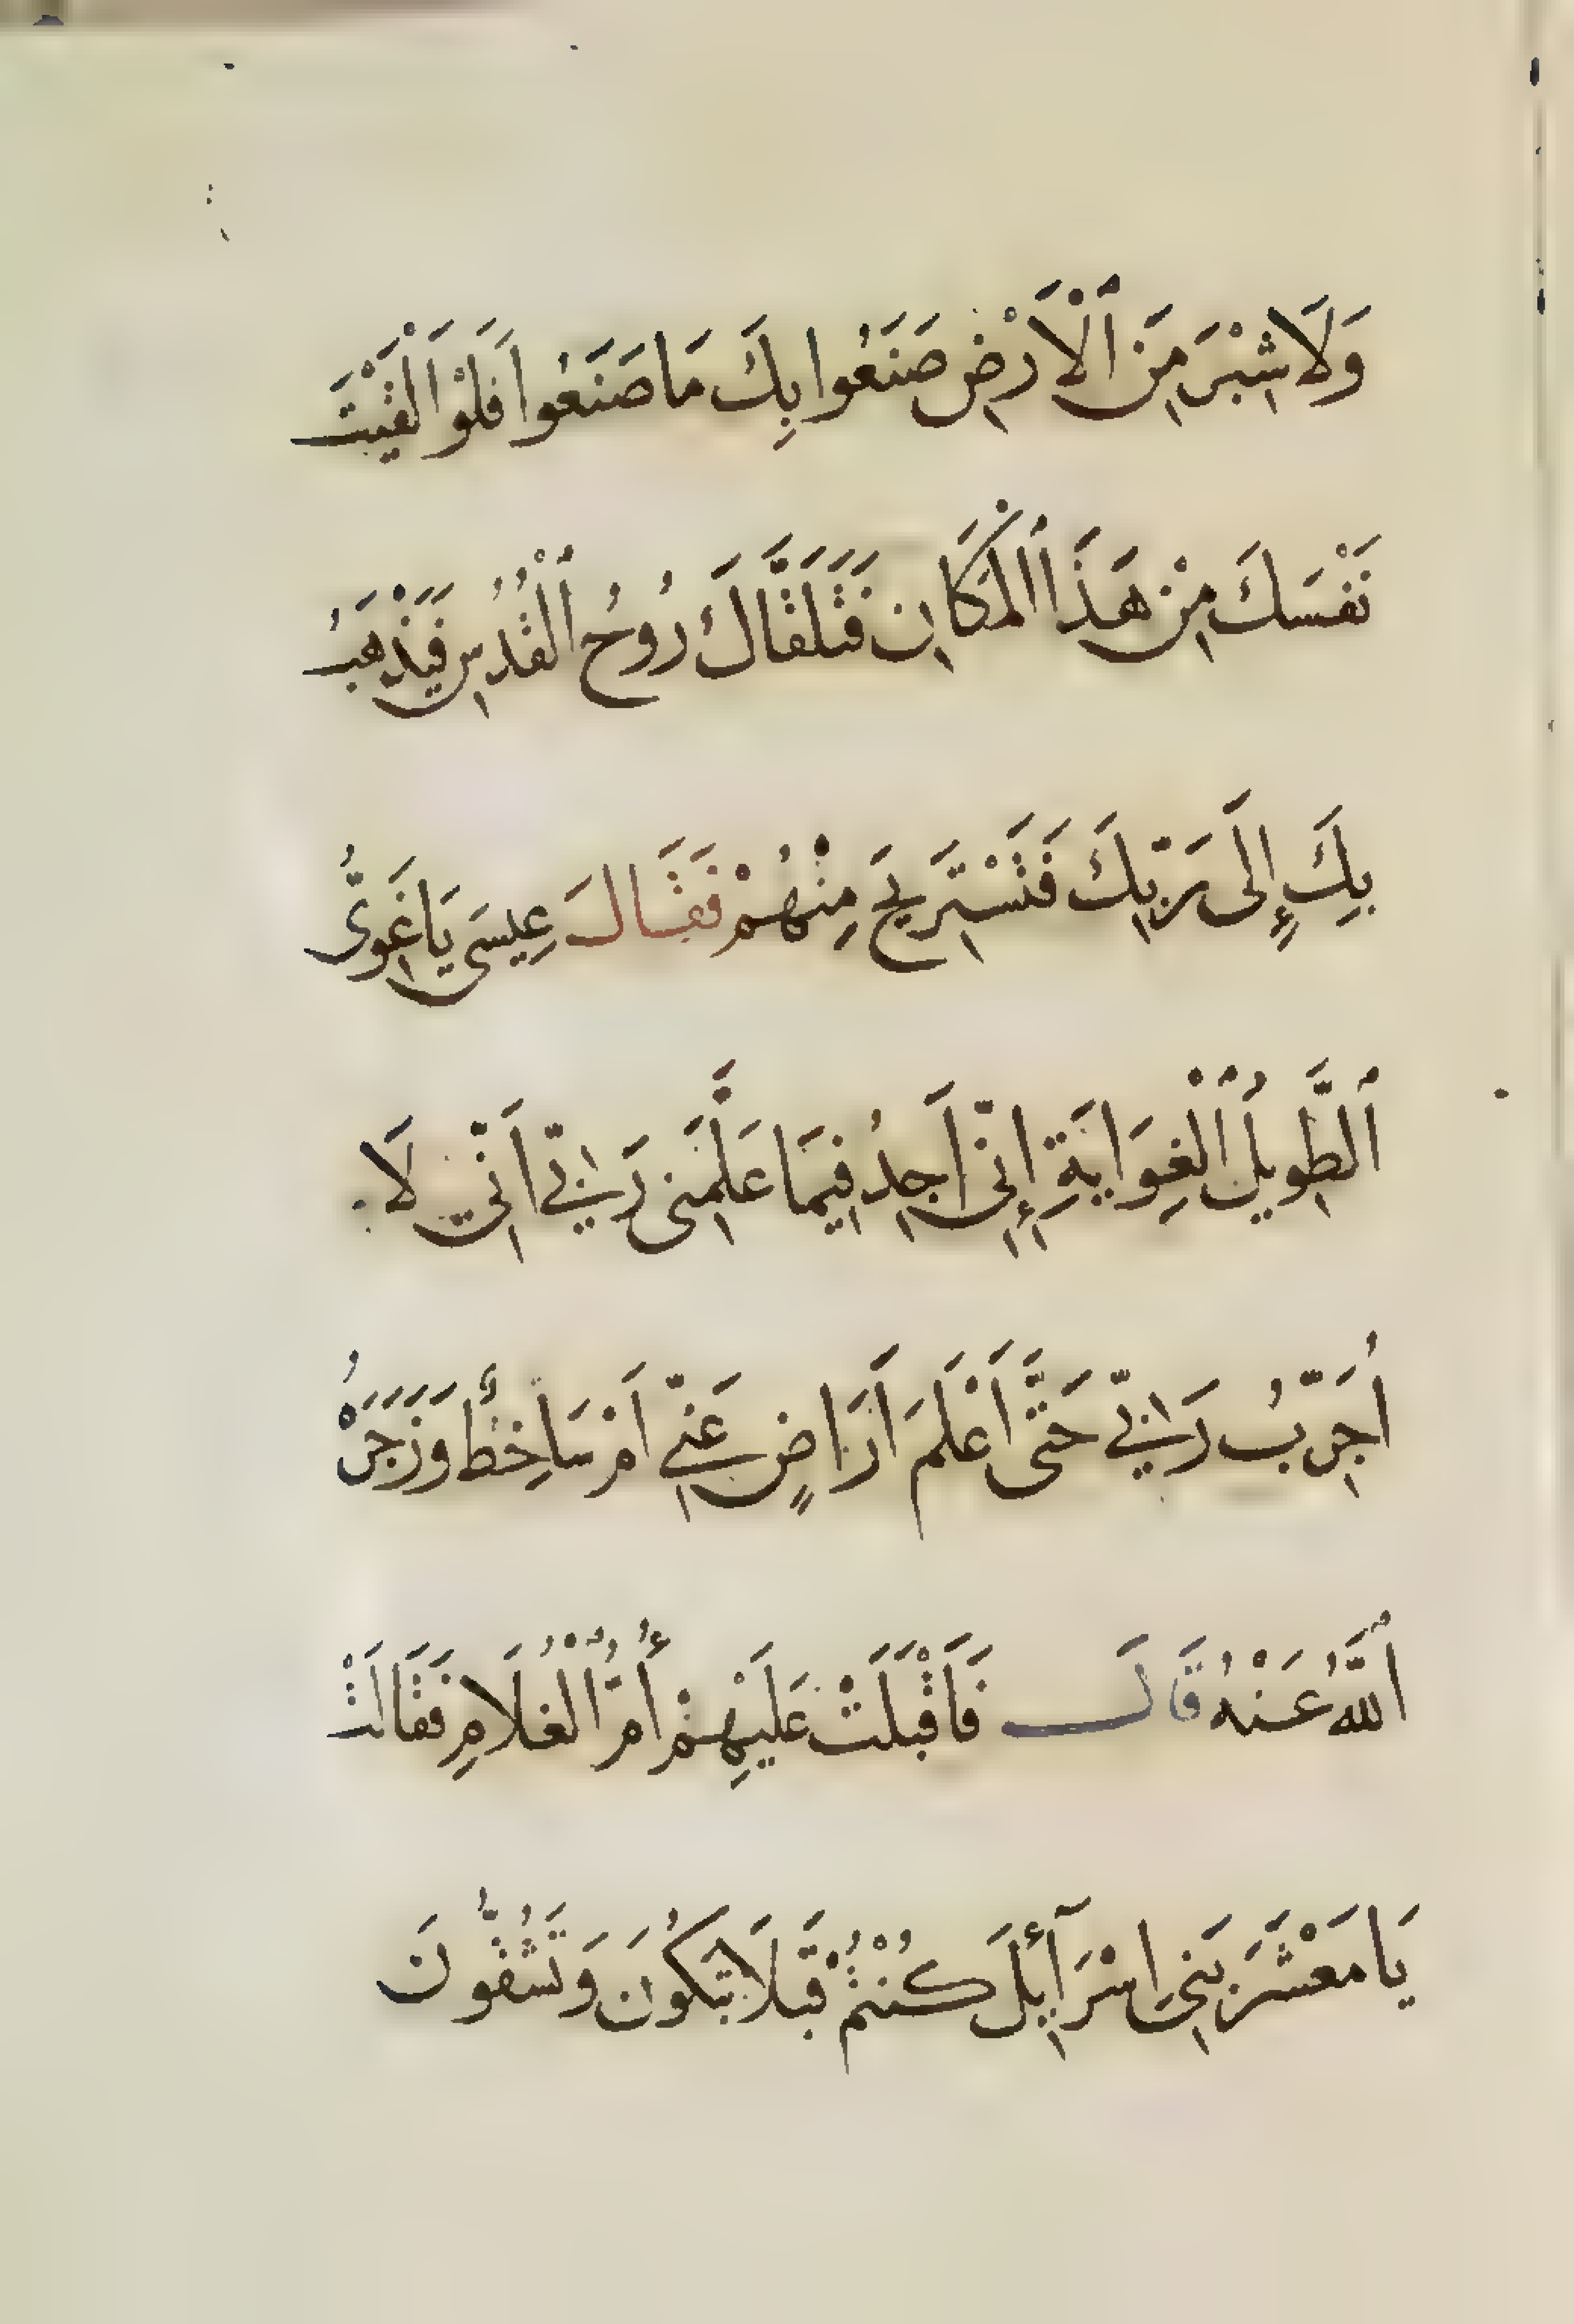 وَلَا شِبْرَ مِنَ ٱلْأَرْضِ صَنَعُوا بِكَ مَا صَنَعُوا فَلَوْ اَلْقَيْتَ
نَفْسَكَ مِنْ هَذَا ٱلْمَكَانِ فَتَلَقَّاكَ رُوحُ ٱلْقُدُسِ فَيَذْهَبُ
بِكَ إِلَى رَبِّكَ فَتَسْتَرِيحَ مِنْهُمْ فَقَالَ عِيسَى يَا غَوِىُّ
ٱلطَّوِيلُ ٱلْغِوَايَةِ إِنِّى اَجِدُ فِيمَا عَلَّمَنِى رَبِّي اَنِّي لَا
اُجَرِّبُ رَبِّي حَتَّى اَعْلَمَ اَرَاضٍ عَنِّي اَمْ سَاخِطٌ وَزَجَرَهُ
ٱللَّهُ عَنْهُ قَالَ فَاَقْبَلَتْ عَلَيْهِمْ أُمُّ ٱلْغُلَامِ فَقَالَتْ
يَا مَعْشَرَ بَنِى اِسْرَآئِلَ كُنْتُمْ قَبْلَا تَبْكُونَ وَتَشُقُّونَ